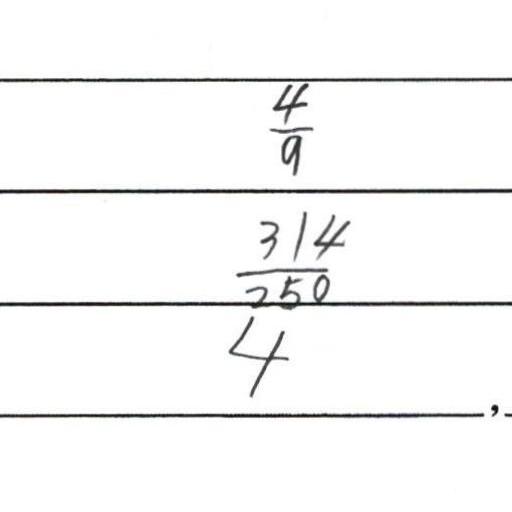 4/9
314/250
4
,